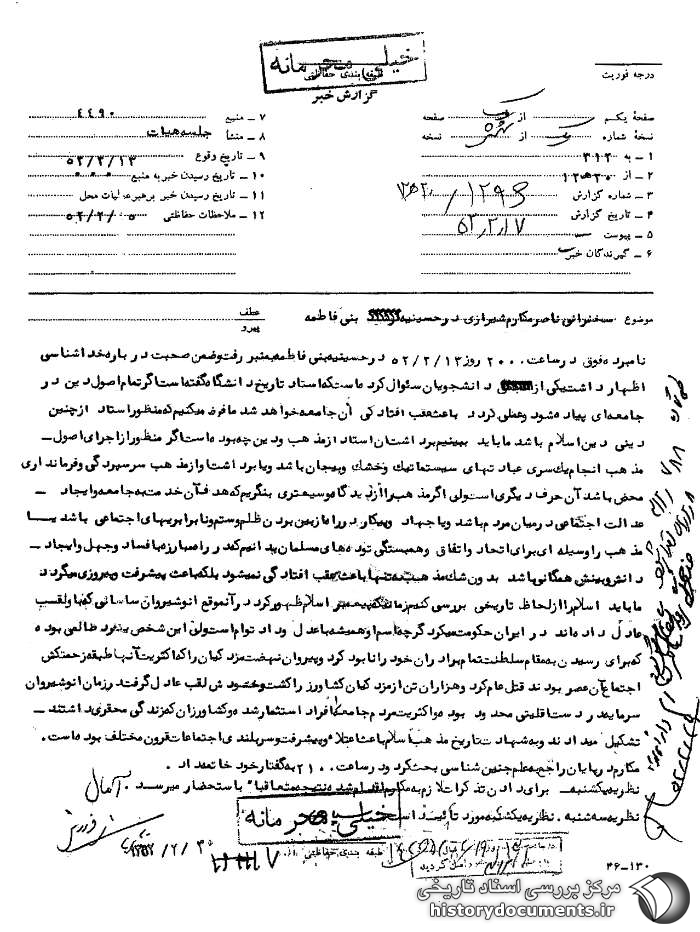 خیلی محرمانه
طبقه بندی حفاظتی
گزارش خبر
درجه فوریت
صفحهٔ یکم از یک صفحه
نسخهٔ شماره از نسخه
۱ ــ به ۳۱۲
۲ ــ از ۲۰ه۱۲
۳ ــ شماره گزارش
۴ ــ تاریخ گزارش ۵۲٫۲٫۱۷
۵ ــ پیوست
۶ ــ گیرندگان خبر
۷ ــ منبع ٤٤٩٠
۸ ــ منشأ جلسه هیات
۹ ــ تاریخ وقوع ۵۲/۲/۱۳
۱۰ ــ تاریخ رسیدن خبر به منبع ۰۰۰
۱۱ ــ تاریخ رسیدن خبر برهبر عملیات محل
۱۲ ــ ملاحظات حفاظتی ۵۲/۲/۰۵
موضوع سخنرانی ناصر مکارم شیرازی در حسینیه بنی فاطمه
عطف
پیرو
نامبرده فوق در ساعت ۲۰۰۰ روز ۵۲/۲/۱۳ در حسینیه بنی فاطمه بمنبر رفت و ضمن صحبت در باره خدا شناسی
اظهار داشت یکی از دانشجویان سئوال کرده است که استاد تاریخ دانشگاه گفته است اگر تمام اصول دین در
جامعه ای پیاده شود و عملی گردد باعث عقب افتادگی آن جامعه خواهد شد ما فرض میکنیم که منظور استاد از چنین
دینی دین اسلام باشد ما باید ببینیم برداشت آن استاد از مذهب و دین چه بوده است اگر منظور از اجرای اصول ــ
مذهب انجام یک سری عبادتهای سیستماتیک و خشک و بیجان باشد و یا برداشت و از مذهب سرسپردگی و فرمانداری
محض باشد آن حرف دیگری است ولی اگر مذهب را از دیدگاه وسیعتری بنگریم که هدف آن خدمت به جامعه و ایجاد ــ
عدالت اجتماعی در میان مردم باشد و یا جهاد و پیکار در راه از بین بردن ظلم و ستم و نابرابریهای اجتماعی باشد یا
مذهب را وسیله ای برای اتحاد و اتفاق و همبستگی توده های مسلمان بدانیم که در راه مبارزه با فساد و جهل و ایجاد ــ
دانش و بینش همگانی باشد بدون شک مذهب نه تنها باعث عقب افتادگی نمیشود بلکه باعث پیشرفت و پیروزی میگردد
ما باید اسلام را از لحاظ تاریخی بررسی کنیم زمانیکه پیغمبر اسلام ظهور کرد در آنموقع انوشیروان ساسانی که باو لقب
عادل داده اند در ایران حکومت میکرد گرچه اسم او همیشه با عدل و داد توام است ولی این شخص بقدری ظالمی بوده
که برای رسیدن به مقام سلطنت تمام برادران خود را نابود کرد و پیروان نهضت مزدکیان را که اکثریت آنها طبقه زحمتکش
اجتماع آن عصر بودند قتل عام کرد و هزاران تن از مزدکیان کشاورز را کشت و خودش لقب عادل گرفت در زمان انوشیروان
سرمایه در دست اقلیتی محدود بوده و اکثریت مردم جامعه را افراد استثمار شده و کشاورزان که زندگی محقری داشتند ــ
تشکیل میدادند و به شهادت تاریخ مذهب اسلام باعث اعتلاء و پیشرفت و سربلندی اجتماعات قرون مختلف بوده است.
مکارم در پایان راجع به علم جنین شناسی بحث کرد و در ساعت ۲۱۰۰ به گفتار خود خاتمه داد.
نظریه یکشنبه ــ برای دادن تذکرات لازم به مکارم اقدام شده نتیجه متعاقباً باستحضار میرسد. آمال
نظریه سه شنبه. نظریه یکشنبه مورد تائید است
خیلی محرمانه
طبقه بندی حفاظتی
۴۶ــ۱۳۰
مرکز بررسی اسناد تاریخی
historydocuments.ir